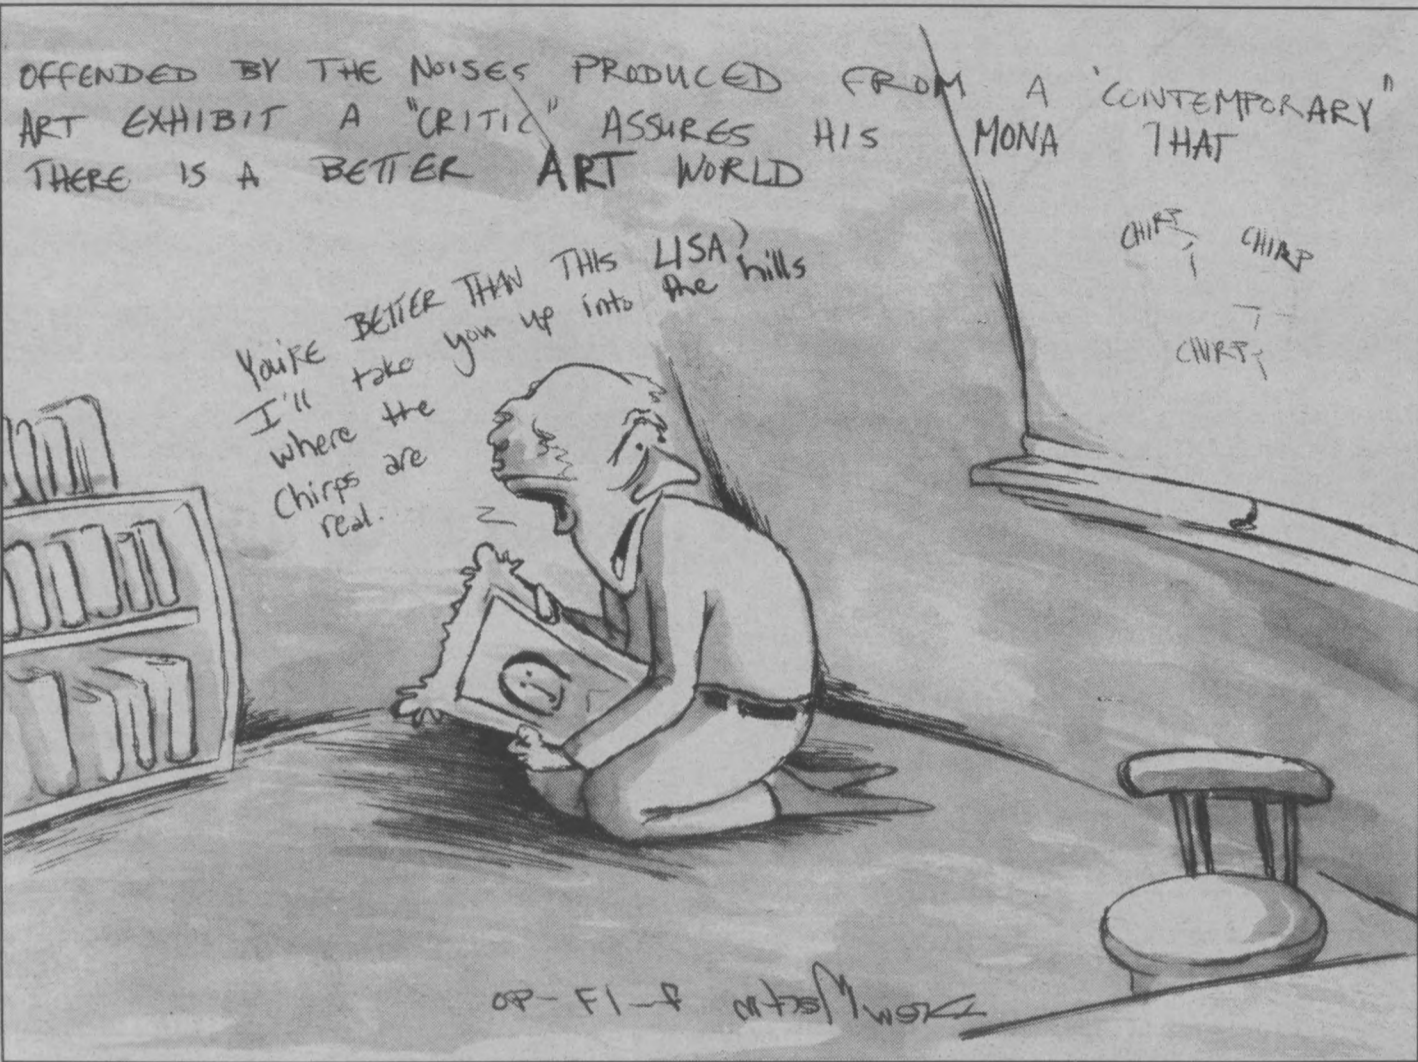 OFFENDED BY THE NOISES PRODUCED FROM A 'CONTEMPORARY"
ART EXHIBIT A "CRITIC" ASSURES HIS MONA THAT
THERE IS A BETTER ART WORLD
CHIRP
CHIRP
CHIRP
YOU'RE BETTER THAN THIS LISA?
I'll take you up into the hills
where the
Chirps are
real.